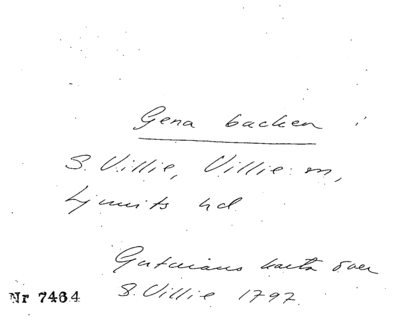 Gena backen
S. Villie, Villie sn,
Ljunits hd
karta över
Nr 7464 S. Villie 1797.